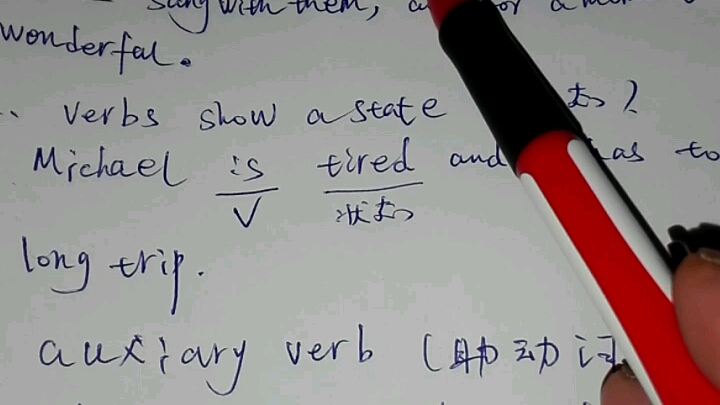 with them,
wonderful.
verbs show a state 态)
Michael is tired and has to
V 状态
long trip.
auxiary verb (助动词